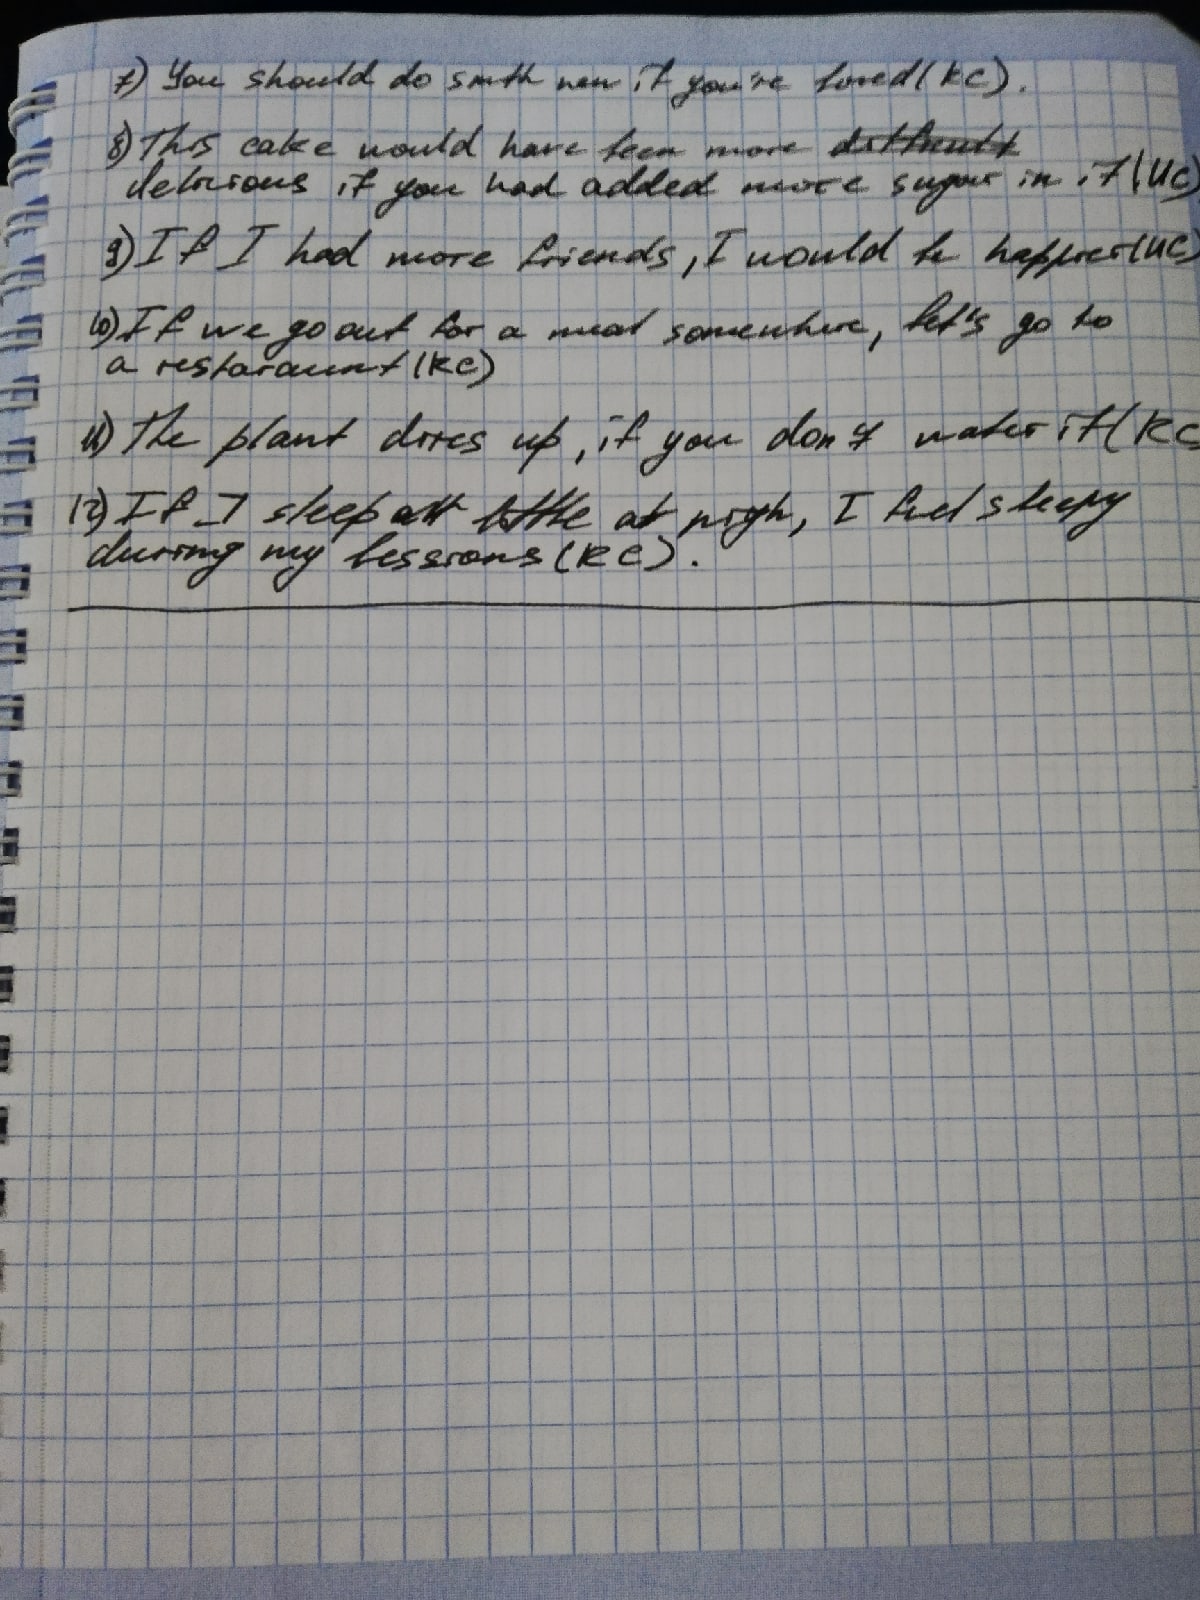 7) You should do smth new if you're bored(RC).
8) This cake would have been more difficult
delicious if you had added more sugar in it(UC)
9) If I had more friends, I would be happier(UC)
10) If we go out for a meal somewhere, let's go to
a restaraunt(RC)
11) The plant dries up, if you don't water it(RC
12) If I sleep little at nigh, I feel sleepy
during my lessions(RC).